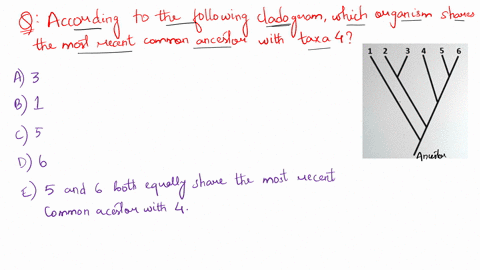 Q: According to the following cladogram, which organism shares
the most recent common ancestor with taxa 4?
A) 3
B) 1
C) 5
D) 6
E) 5 and 6 both equally share the most recent
Common acestor with 4.
1 2 3 4 5 6
Ancestor